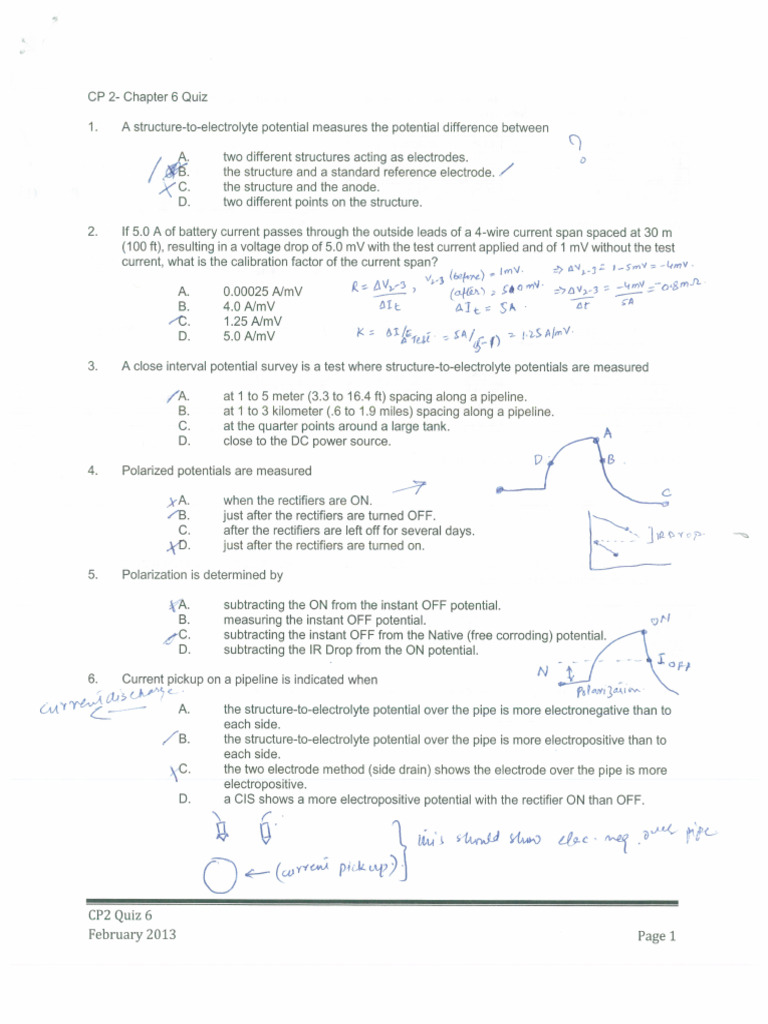 CP 2- Chapter 6 Quiz
1. A structure-to-electrolyte potential measures the potential difference between
?
A. two different structures acting as electrodes.
B. the structure and a standard reference electrode.
C. the structure and the anode.
D. two different points on the structure.
2. If 5.0 A of battery current passes through the outside leads of a 4-wire current span spaced at 30 m
(100 ft), resulting in a voltage drop of 5.0 mV with the test current applied and of 1 mV without the test
current, what is the calibration factor of the current span?
R = ΔV2-3 / ΔIt , V2-3 (before) = 1mV. ⇒ ΔV2-3 = 1-5mV = -4mV.
(after) = 5.0 mV. ⇒ ΔV2-3 / Δt = -4mV / 5A = -0.8mΩ
ΔIt = 5A.
K = ΔI/E Test = 5A/(5-1) = 1.25 A/mV.
A. 0.00025 A/mV
B. 4.0 A/mV
C. 1.25 A/mV
D. 5.0 A/mV
3. A close interval potential survey is a test where structure-to-electrolyte potentials are measured
A. at 1 to 5 meter (3.3 to 16.4 ft) spacing along a pipeline.
B. at 1 to 3 kilometer (.6 to 1.9 miles) spacing along a pipeline.
C. at the quarter points around a large tank.
D. close to the DC power source.
A
D
B
C
4. Polarized potentials are measured
A. when the rectifiers are ON.
B. just after the rectifiers are turned OFF.
C. after the rectifiers are left off for several days.
D. just after the rectifiers are turned on.
IR Drop
5. Polarization is determined by
A. subtracting the ON from the instant OFF potential.
B. measuring the instant OFF potential.
C. subtracting the instant OFF from the Native (free corroding) potential.
D. subtracting the IR Drop from the ON potential.
ON
I OFF
N
Polarization
6. Current pickup on a pipeline is indicated when
current discharge.
A. the structure-to-electrolyte potential over the pipe is more electronegative than to
each side.
B. the structure-to-electrolyte potential over the pipe is more electropositive than to
each side.
C. the two electrode method (side drain) shows the electrode over the pipe is more
electropositive.
D. a CIS shows a more electropositive potential with the rectifier ON than OFF.
(current pickup)
this should show elec. neg. over pipe
CP2 Quiz 6
February 2013
Page 1